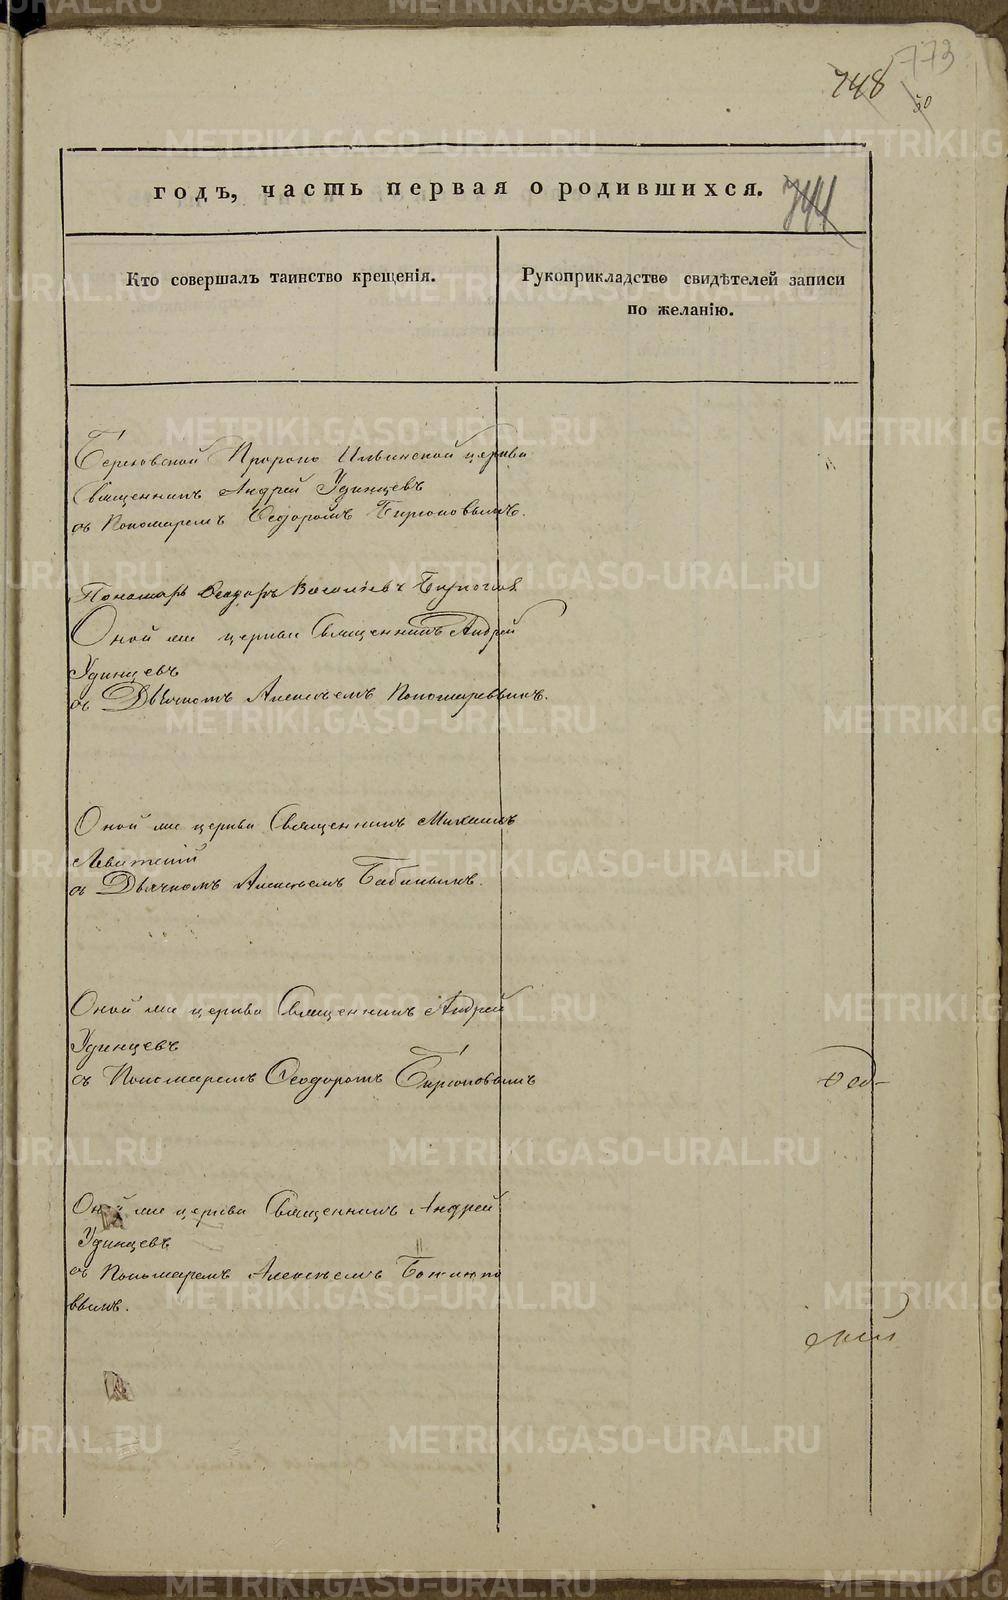 773
748
50
годъ, часть первая о родившихся.
744
Кто совершалъ таинство крещенія.
Рукоприкладство свидѣтелей записи
по желанію.
Пророко Ильинской церкви
Священникъ Андрей Удинцевъ
съ Пономаремъ Ѳеодоромъ Бирюковымъ.
Пономарь Ѳеодоръ Бирюковъ
Оной же церкви Священникъ Андрей
Удинцевъ
съ Дьячкомъ Алексѣемъ Пономаревымъ.
Оной же церкви Священникъ Михаилъ
Левитскій
съ Дьячкомъ Алексѣемъ Бабинымъ.
Оной же церкви Священникъ Андрей
Удинцевъ
съ Пономаремъ Ѳеодоромъ Бирюковымъ
Оной же церкви Священникъ Андрей
Удинцевъ
съ Пономаремъ Алексѣемъ
вымъ.
METRIKI.GASO-URAL.RU